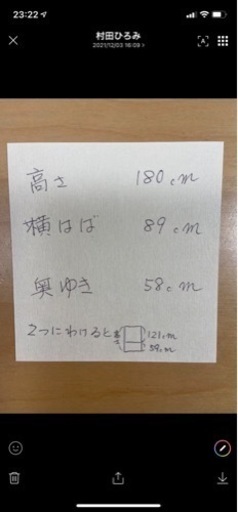 23:22
村田ひろみ
2021/12/03 16:09
高さ 180cm
横はば 89cm
奥ゆき 58cm
2つにわけると 高さ 121cm
59cm